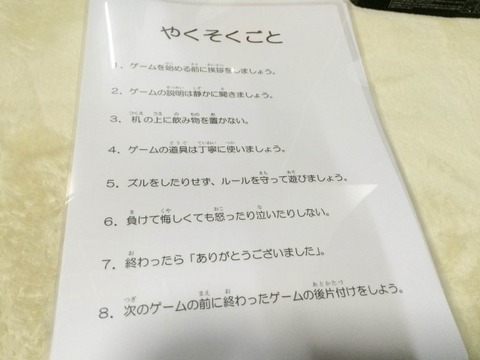 やくそくごと
1. ゲームを始める前に挨拶をしましょう。
2. ゲームの説明は静かに聞きましょう。
3. 机の上に飲み物を置かない。
4. ゲームの道具は丁寧に使いましょう。
5. ズルをしたりせず、ルールを守って遊びましょう。
6. 負けて悔しくても怒ったり泣いたりしない。
7. 終わったら「ありがとうございました」。
8. 次のゲームの前に終わったゲームの後片付けをしよう。